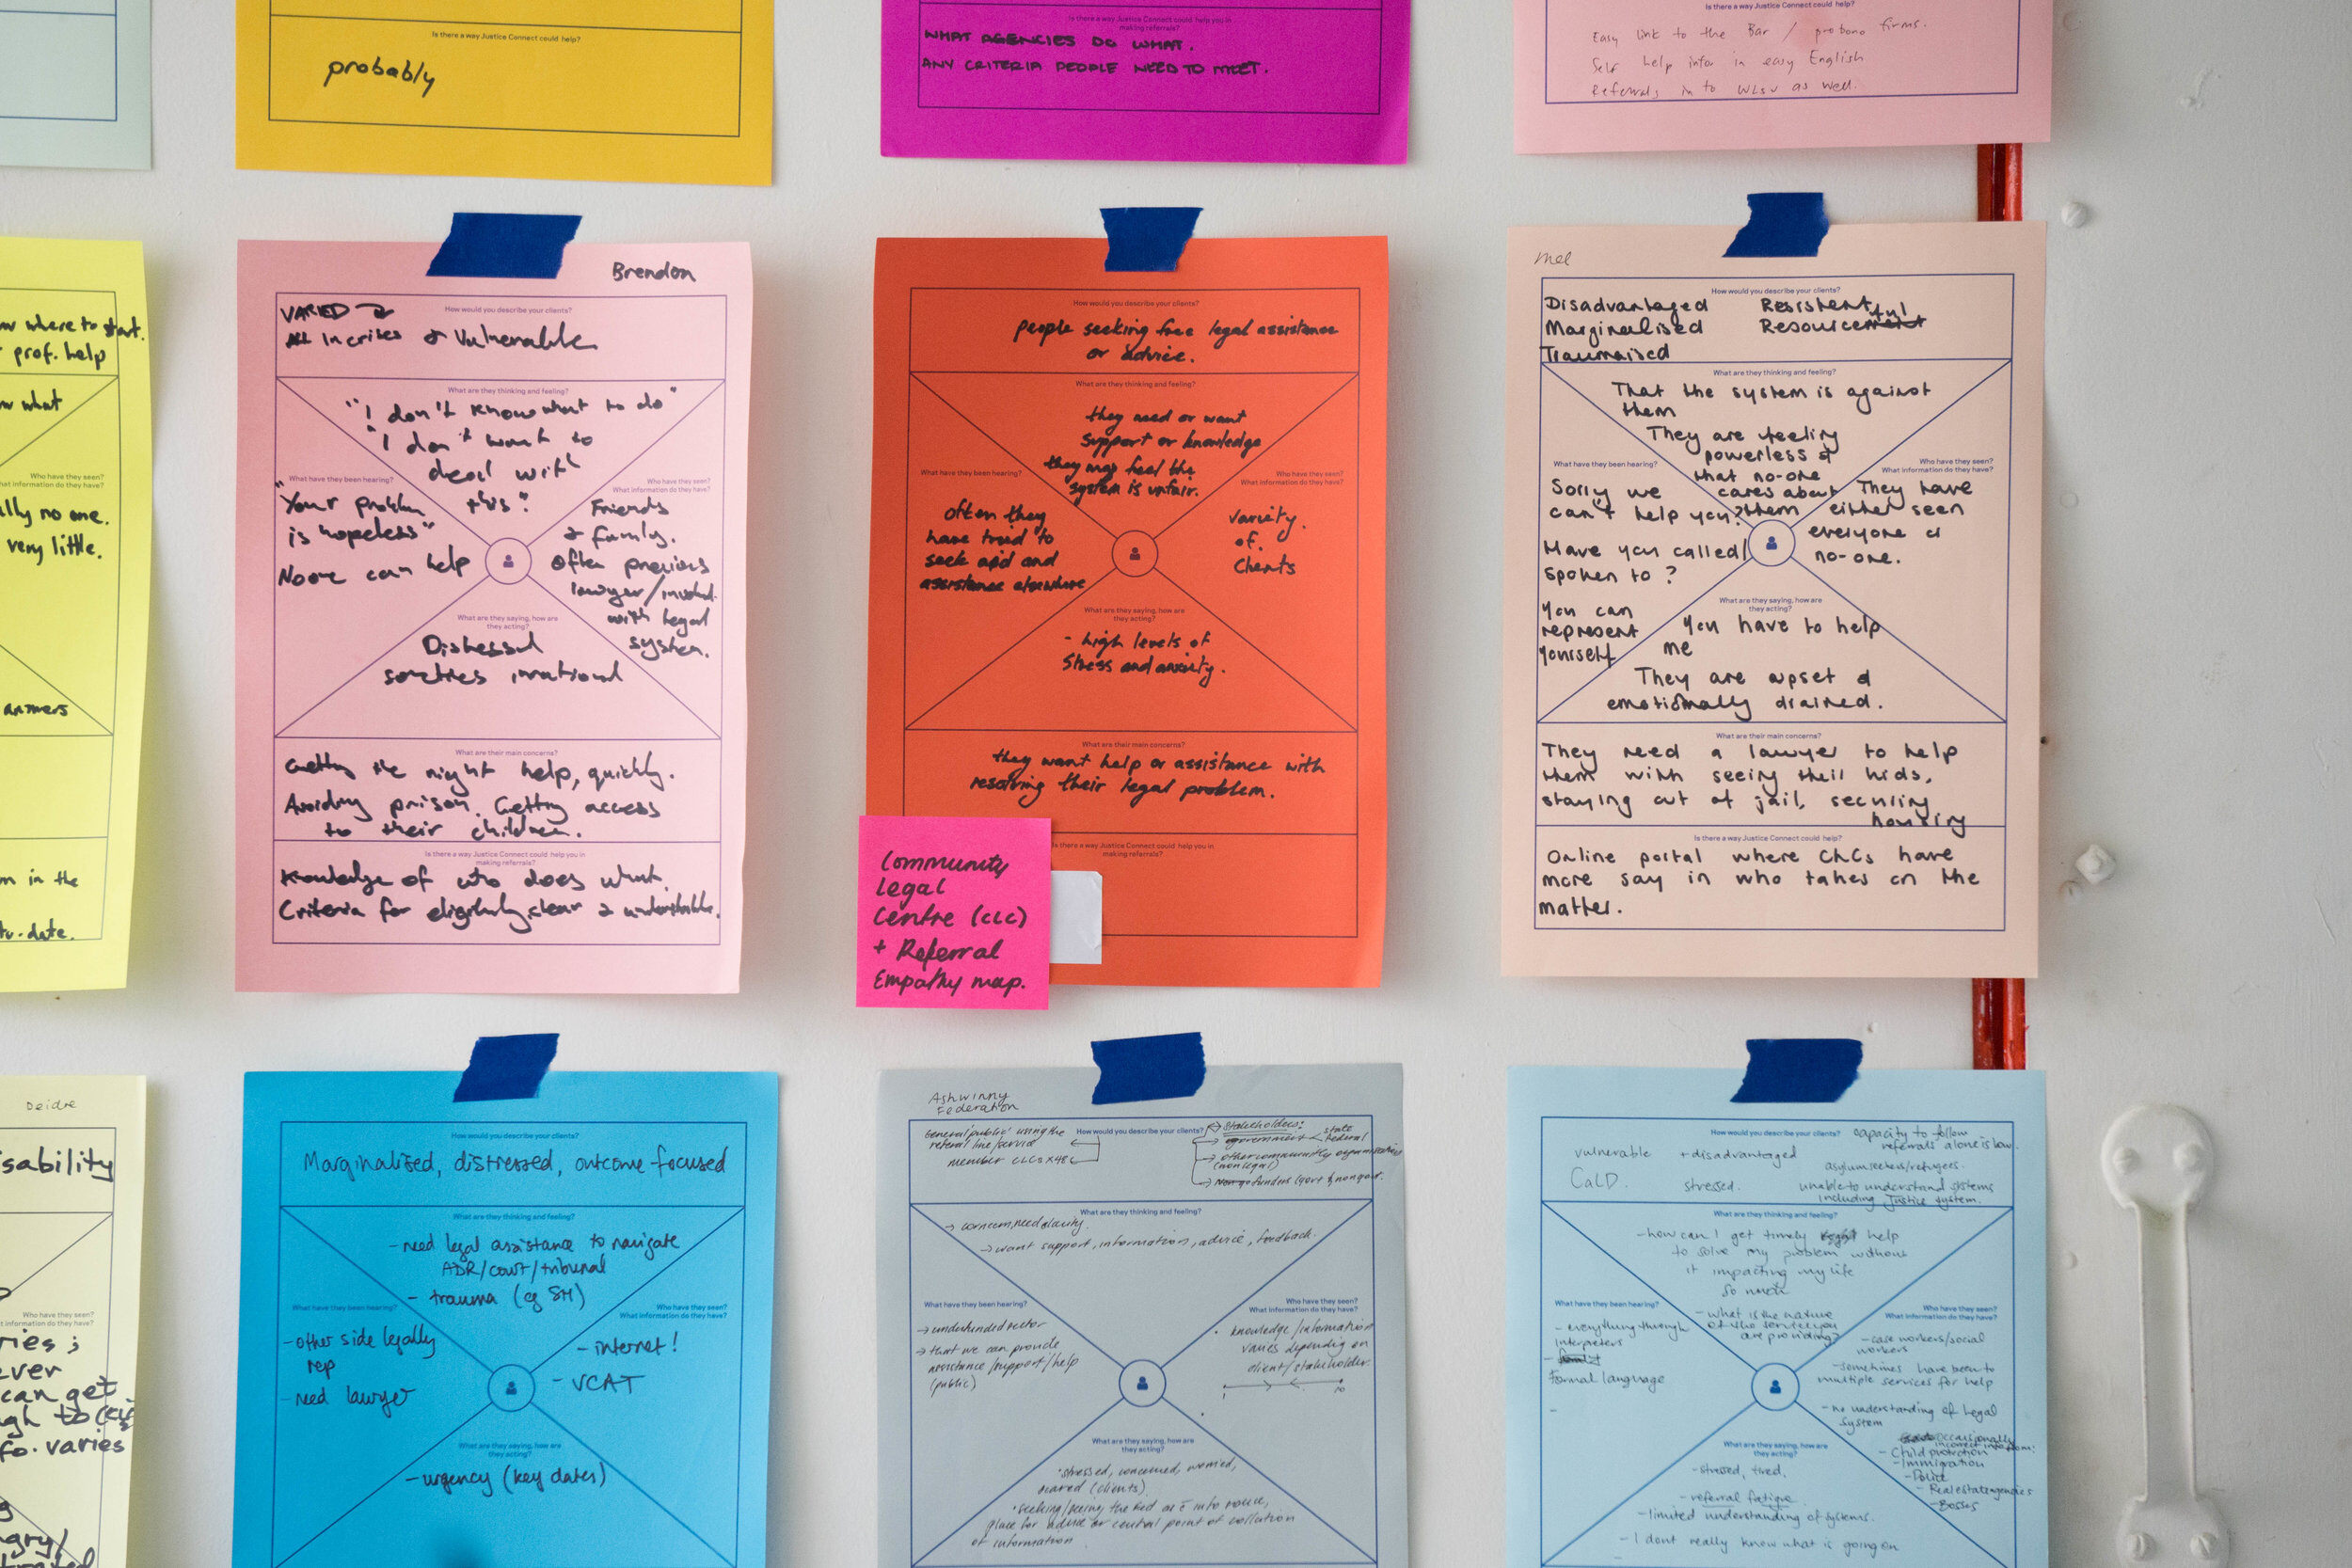 Is there a way Justice Connect could help?
probably
Is there a way Justice Connect could help you in
making referrals?
WHAT AGENCIES DO WHAT.
ANY CRITERIA PEOPLE NEED TO MEET.
Is there a way Justice Connect could help?
Easy link to the Bar / probono firms.
Self help infor in easy English
Referrals in to WLSV as well.
where to start.
prof. help
what
Who have they seen?
What information do they have?
no one.
very little.
answers
in the
date.
Brendon
How would you describe your clients?
VARIED
All In crises & Vulnerable
What are they thinking and feeling?
"I don't know what to do"
"I don't want to
deal with
this."
What have they been hearing?
"Your problem
is hopeless"
Noone can help
Who have they seen?
What information do they have?
Friends
& family.
Often previous
lawyer/involved
with legal
system.
What are they saying, how are
they acting?
Distressed
sometimes irrational
What are their main concerns?
Getting the right help, quickly.
Avoiding prison. Getting access
to their children.
Is there a way Justice Connect could help you in
making referrals?
Knowledge of who does what.
Criteria for eligibility, clear & understandable.
How would you describe your clients?
people seeking free legal assistance
or advice.
What are they thinking and feeling?
they need or want
support or knowledge
they may feel the
system is unfair.
What have they been hearing?
often they
have tried to
seek aid and
assistance elsewhere
Who have they seen?
What information do they have?
variety
of
clients
What are they saying, how are
they acting?
- high levels of
stress and anxiety.
What are their main concerns?
they want help or assistance with
resolving their legal problem.
Is there a way Justice Connect could help you in
making referrals?
Community
Legal
Centre (CLC)
+ Referral
Empathy map.
Mel
How would you describe your clients?
Disadvantaged Resistent
Marginalised Resourceful
Traumaised
What are they thinking and feeling?
That the system is against
them
They are feeling
powerless &
that no-one
cares about
them
What have they been hearing?
Sorry we
can't help you?
Have you called/
spoken to?
You can
represent
yourself
Who have they seen?
What information do they have?
They have
either seen
everyone or
no-one.
What are they saying, how are
they acting?
You have to help
me
They are upset &
emotionally drained.
What are their main concerns?
They need a lawyer to help
them with seeing their kids,
staying out of jail, securing
housing
Is there a way Justice Connect could help?
Online portal where CLCs have
more say in who takes on the
matter.
Deidre
can get
varies
Who have they seen?
What information do they have?
How would you describe your clients?
Marginalised, distressed, outcome focused
What are they thinking and feeling?
- need legal assistance to navigate
ADR/court/tribunal
- trauma (eg SH)
What have they been hearing?
- other side legally
rep
- need lawyer
Who have they seen?
What information do they have?
- internet!
- VCAT
What are they saying, how are
they acting?
- urgency (key dates)
Ashwinny
Federation
How would you describe your clients?
General/public using the
referral line/service
member CLCs x48
Stakeholders:
government
state
federal
other community organisations
(non legal)
funders (govt & nongovt.
What are they thinking and feeling?
→ concern, need clarity.
→ want support, information, advice, feedback.
What have they been hearing?
→ underfunded sector
→ that we can provide
assistance/support/help
(public)
Who have they seen?
What information do they have?
knowledge/information
varies depending on
client/stakeholder.
1 10
What are they saying, how are
they acting?
• stressed, concerned, worried,
scared (clients)
place for advice or central point of collation
of information
How would you describe your clients?
vulnerable + disadvantaged
CALD. stressed.
capacity to follow
referrals alone is low.
asylum seekers/refugees.
unable to understand systems
including Justice system.
What are they thinking and feeling?
- how can I get timely help
to solve my problem without
it impacting my life
so much
- what is the nature
of the service you
are providing?
What have they been hearing?
- everything through
interpreters
formal language
Who have they seen?
What information do they have?
- case workers/social
workers
- sometimes have been to
multiple services for help
- no understanding of legal
system
occasionally
incorrect info from:
- Child protection
- Immigration
- Police
- Real estate agencies
- Bosses
What are they saying, how are
they acting?
- stressed, tired,
- referral fatigue
- limited understanding of systems.
- I dont really know what is going on